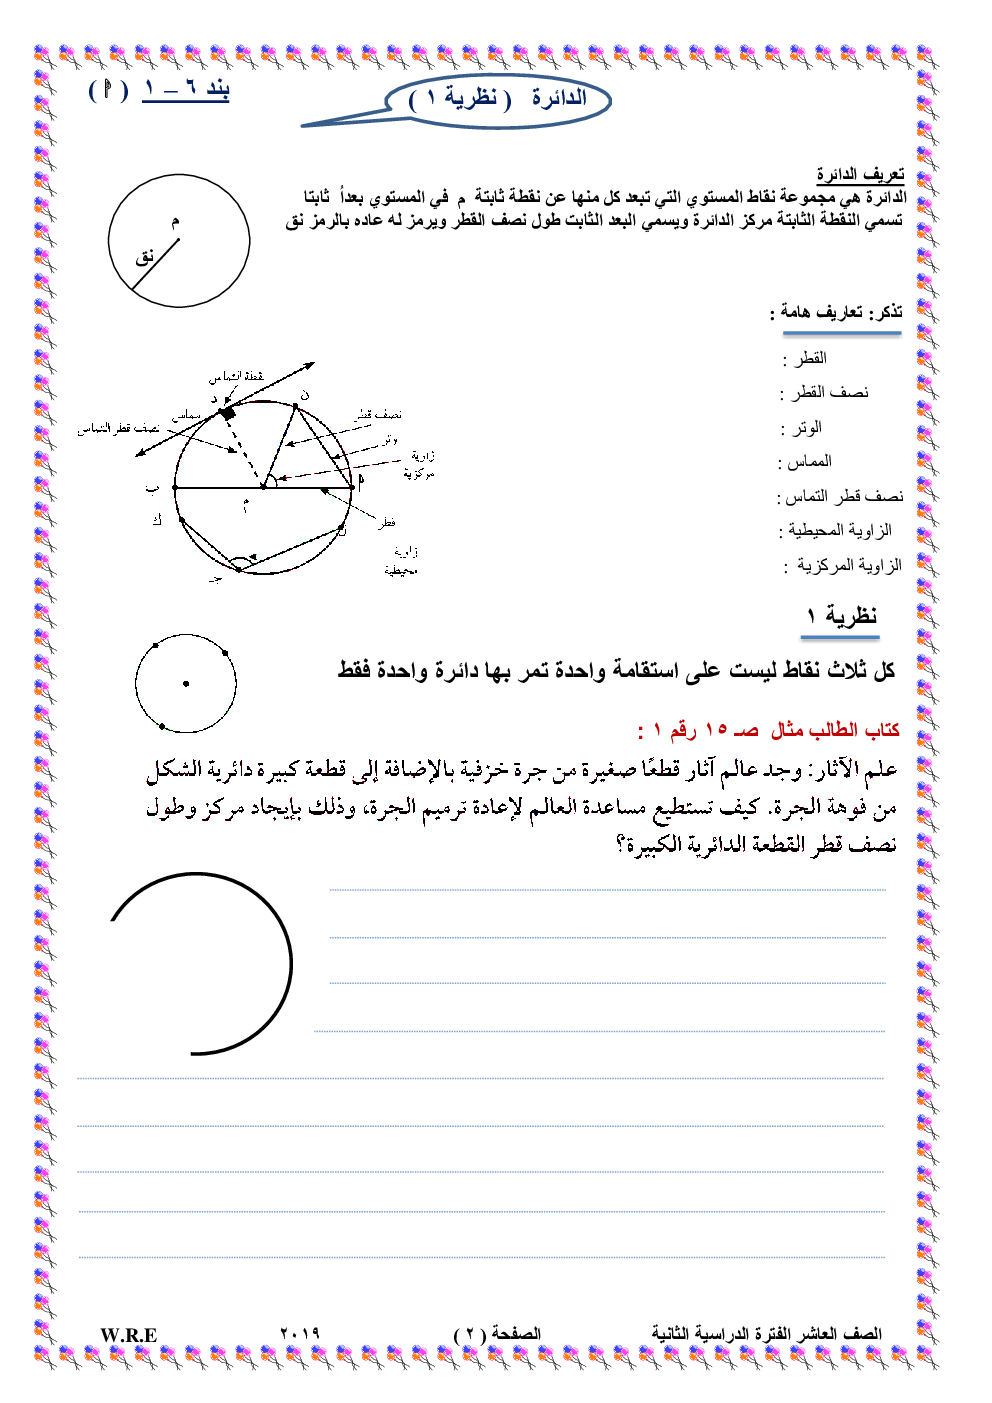 بند ٦ – ١ ( أ )
الدائرة ( نظرية ١ )
تعريف الدائرة
الدائرة هي مجموعة نقاط المستوي التي تبعد كل منها عن نقطة ثابتة م في المستوي بعداً ثابتا
تسمي النقطة الثابتة مركز الدائرة ويسمي البعد الثابت طول نصف القطر ويرمز له عاده بالرمز نق
م
نق
تذكر: تعاريف هامة :
القطر :
نصف القطر :
الوتر :
المماس :
نصف قطر التماس :
الزاوية المحيطية :
الزاوية المركزية :
نقطة التماس
د
ن
مماس
نصف قطر
نصف قطر التماس
وتر
زاوية
مركزية
أ
ب
م
ك
قطر
ل
زاوية
محيطية
جـ
نظرية ١
كل ثلاث نقاط ليست على استقامة واحدة تمر بها دائرة واحدة فقط
كتاب الطالب مثال صـ ١٥ رقم ١ :
علم الآثار: وجد عالم آثار قطعًا صغيرة من جرة خزفية بالإضافة إلى قطعة كبيرة دائرية الشكل
من فوهة الجرة. كيف تستطيع مساعدة العالم لإعادة ترميم الجرة، وذلك بإيجاد مركز وطول
نصف قطر القطعة الدائرية الكبيرة؟
الصف العاشر الفترة الدراسية الثانية
الصفحة ( ٢ )
٢٠١٩
W.R.E